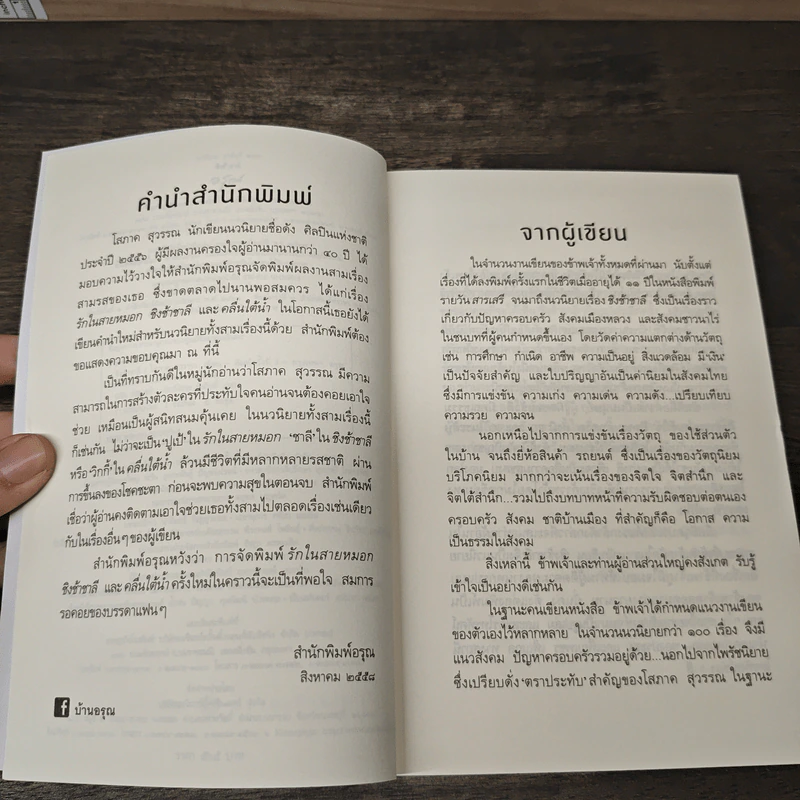 คำนำสำนักพิมพ์
โสภาค สุวรรณ นักเขียนนวนิยายชื่อดัง ศิลปินแห่งชาติ
ประจำปี ๒๕๕๖ ผู้มีผลงานครองใจผู้อ่านมานานกว่า ๔๐ ปี ได้
มอบความไว้วางใจให้สำนักพิมพ์อรุณจัดพิมพ์ผลงานสามเรื่อง
สามรสของเธอ ซึ่งขาดตลาดไปนานพอสมควร ได้แก่เรื่อง
รักในสายหมอก ชิงช้าชาลี และคลื่นใต้น้ำ ในโอกาสนี้เธอยังได้
เขียนคำนำใหม่สำหรับนวนิยายทั้งสามเรื่องนี้ด้วย สำนักพิมพ์ต้อง
ขอแสดงความขอบคุณมา ณ ที่นี้
เป็นที่ทราบกันดีในหมู่นักอ่านว่าโสภาค สุวรรณ มีความ
สามารถในการสร้างตัวละครที่ประทับใจคนอ่านจนต้องคอยเอาใจ
ช่วย เหมือนเป็นผู้สนิทสนมคุ้นเคย ในนวนิยายทั้งสามเรื่องนี้
ก็เช่นกัน ไม่ว่าจะเป็น 'ปูเป้' ใน รักในสายหมอก 'ชาลี' ใน ชิงช้าชาลี
หรือ 'วิกกี้' ใน คลื่นใต้น้ำ ล้วนมีชีวิตที่มีหลากหลายรสชาติ ผ่าน
การขึ้นลงของโชคชะตา ก่อนจะพบความสุขในตอนจบ สำนักพิมพ์
เชื่อว่าผู้อ่านคงติดตามเอาใจช่วยเธอทั้งสามไปตลอดเรื่องเช่นเดียว
กับในเรื่องอื่นๆ ของผู้เขียน
สำนักพิมพ์อรุณหวังว่า การจัดพิมพ์ รักในสายหมอก
ชิงช้าชาลี และ คลื่นใต้น้ำ ครั้งใหม่ในคราวนี้จะเป็นที่พอใจ สมการ
รอคอยของบรรดาแฟนๆ
สำนักพิมพ์อรุณ
สิงหาคม ๒๕๕๘
f บ้านอรุณ
จากผู้เขียน
ในจำนวนงานเขียนของข้าพเจ้าทั้งหมดที่ผ่านมา นับตั้งแต่
เรื่องที่ได้ลงพิมพ์ครั้งแรกในชีวิตเมื่ออายุได้ ๑๑ ปีในหนังสือพิมพ์
รายวัน สารเสรี จนมาถึงนวนิยายเรื่อง ชิงช้าชาลี ซึ่งเป็นเรื่องราว
เกี่ยวกับปัญหาครอบครัว สังคมเมืองหลวง และสังคมชาวนาไร่
ในชนบทที่ผู้คนกำหนดขึ้นเอง โดยวัดค่าความแตกต่างด้านวัตถุ
เช่น การศึกษา กำเนิด อาชีพ ความเป็นอยู่ สิ่งแวดล้อม มี 'เงิน'
เป็นปัจจัยสำคัญ และใบปริญญาอันเป็นค่านิยมในสังคมไทย
ซึ่งมีการแข่งขัน ความเก่ง ความเด่น ความดัง...เปรียบเทียบ
ความรวย ความจน
นอกเหนือไปจากการแข่งขันเรื่องวัตถุ ของใช้ส่วนตัว
ในบ้าน จนถึงยี่ห้อสินค้า รถยนต์ ซึ่งเป็นเรื่องของวัตถุนิยม
บริโภคนิยม มากกว่าจะเน้นเรื่องของจิตใจ จิตสำนึก และ
จิตใต้สำนึก...รวมไปถึงบทบาทหน้าที่ความรับผิดชอบต่อตนเอง
ครอบครัว สังคม ชาติบ้านเมือง ที่สำคัญก็คือ โอกาส ความ
เป็นธรรมในสังคม
สิ่งเหล่านี้ ข้าพเจ้าและท่านผู้อ่านส่วนใหญ่คงสังเกต รับรู้
เข้าใจเป็นอย่างดีเช่นกัน
ในฐานะคนเขียนหนังสือ ข้าพเจ้าได้กำหนดแนวงานเขียน
ของตัวเองไว้หลากหลาย ในจำนวนนวนิยายกว่า ๑๐๐ เรื่อง จึงมี
แนวสังคม ปัญหาครอบครัวรวมอยู่ด้วย...นอกไปจากไพรัชนิยาย
ซึ่งเปรียบดั่ง 'ตราประทับ' สำคัญของโสภาค สุวรรณ ในฐานะ